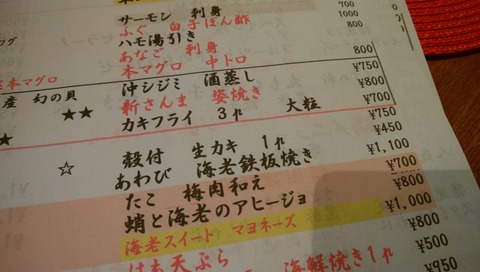 サーモン 刺身
ふぐ 白子ぽん酢
ハモ湯引き
あなご 刺身
本マグロ 中トロ
沖シジミ 酒蒸し
新さんま 姿焼き
カキフライ 3ケ 大粒
殻付 生カキ 1ケ
あわび 海老鉄板焼き
たこ 梅肉和え
蛸と海老のアヒージョ
海老スイート マヨネーズ
はも天ぷら 海鮮焼き1ケ
本マグロ
産 幻の貝
★★
★
☆
700
1000
800
800
¥750
¥800
¥700
¥750
¥450
¥1,100
¥700
¥800
¥1,000
¥800
¥500
¥950